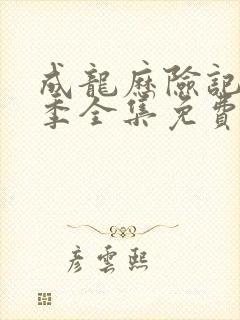 成龍歷險記
季全集免費
彥雲熙